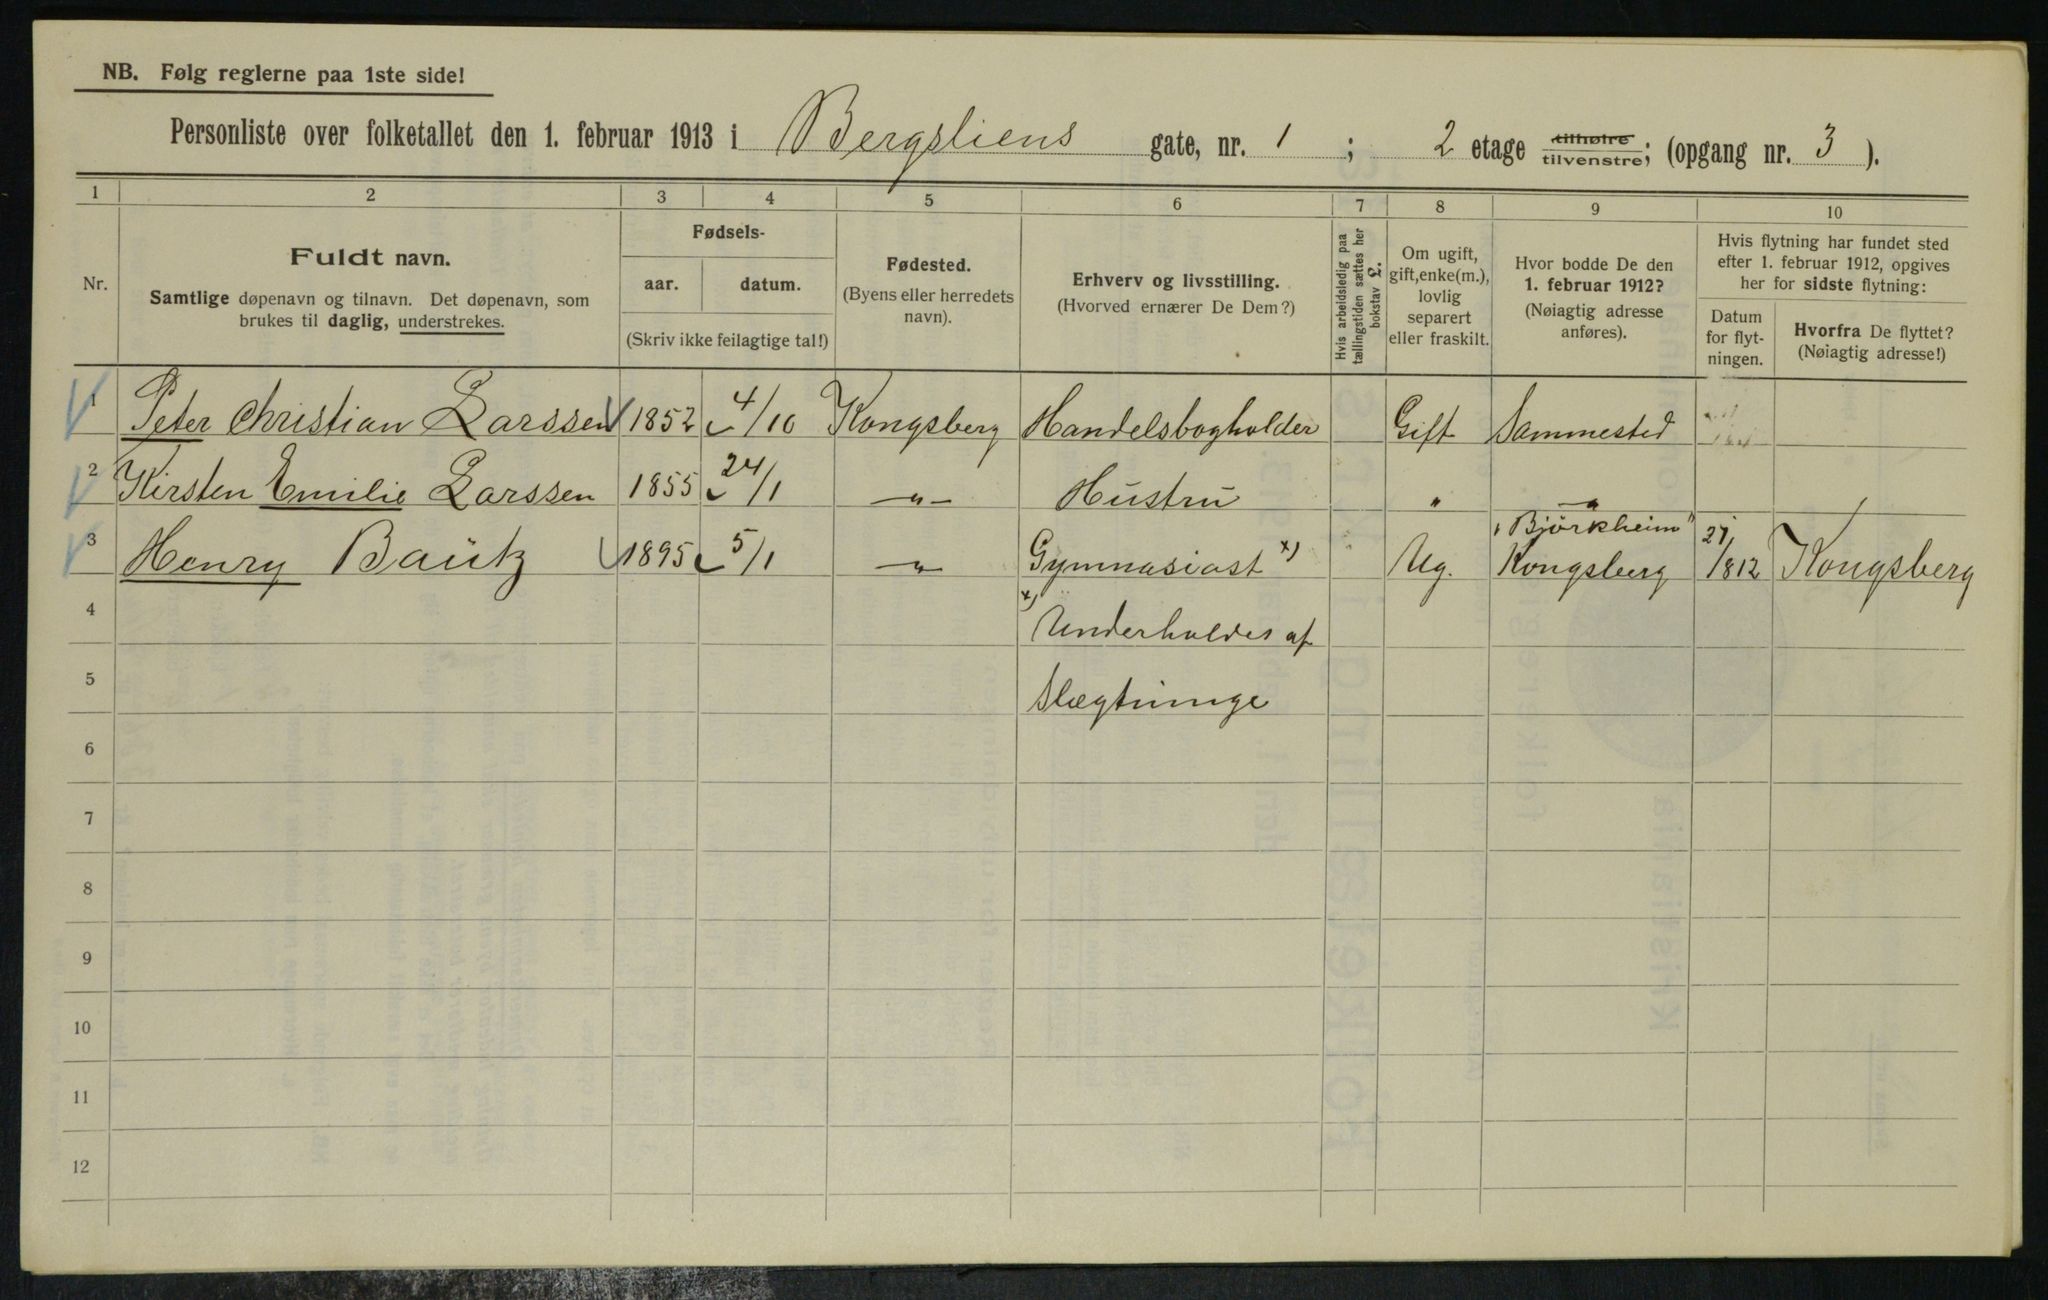 NB. Følg reglerne paa 1ste side!
Personliste over folketallet den 1. februar 1913 i Bergsliens gate, nr. 1 ; 2 etage tilhøire tilvenstre; (opgang nr. 3 ).
1 2 3 4 5 6 7 8 9 10
Nr.
Fuldt navn.
Samtlige døpenavn og tilnavn. Det døpenavn, som
brukes til daglig, understrekes.
Fødsels-
aar. datum.
(Skriv ikke feilagtige tal!)
Fødested.
(Byens eller herredets
navn).
Erhverv og livsstilling.
(Hvorved ernærer De Dem?)
Hvis arbeidsledig paa
tællingstiden sættes her
bokstav L.
Om ugift,
gift, enke(m.),
lovlig
separert
eller fraskilt.
Hvor bodde De den
1. februar 1912?
(Nøiagtig adresse
anføres).
Hvis flytning har fundet sted
efter 1. februar 1912, opgives
her for sidste flytning:
Datum
for flyt-
ningen.
Hvorfra De flyttet?
(Nøiagtig adresse!)
1 Peter Christian Larssen 1852 4/10 Kongsberg Handelsbogholder Gift Sammested
2 Kirsten Emilie Larssen 1855 24/1 —"— Hustru " —"—
3 Henry Bautz 1895 5/1 —"— Gymnasiast x) Ug. "Björkheim" Kongsberg 27/812 Kongsberg
4 x) Underholdes af
5 Slægtninge
6
7
8
9
10
11
12